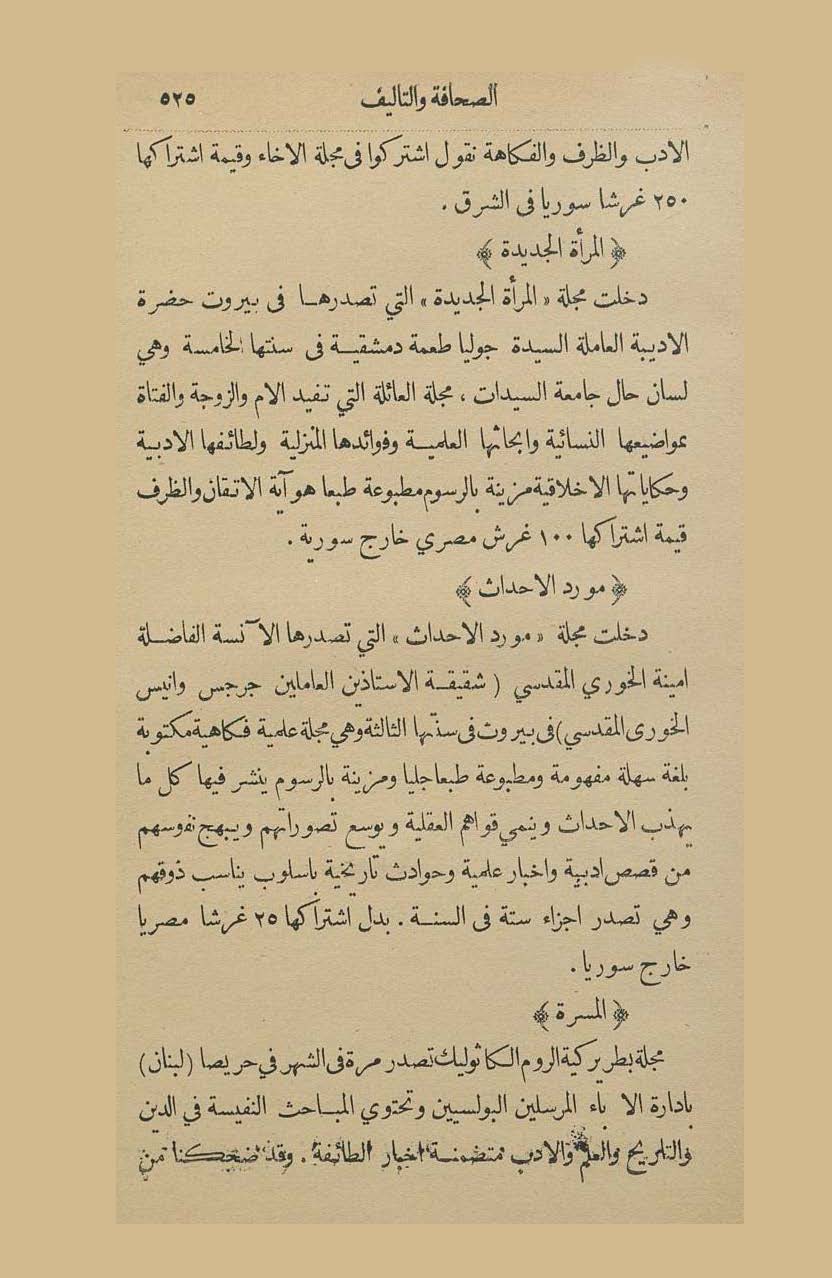 الصحافة والتاليف ٥٢٥
الادب والظرف والفكاهة نقول اشتركوا في مجلة الاخاء وقيمة اشتراكها
٢٥٠ غرشا سوريا في الشرق .
﴿ المرأة الجديدة ﴾
دخلت مجلة « المرأة الجديدة » التي تصدرهـا فى بيروت حضرة
الاديبة العاملة السيدة جوليا طعمة دمشقيـة فى سنتها الخامسة وهي
لسان حال جامعة السيدات ، مجلة العائلة التي تفيد الام والزوجة والفتاة
بمواضيعها النسائية وابحاثها العلميـة وفوائدها المنزلية ولطائفها الادبية
وحكاياتها الاخلاقية مزينة بالرسوم مطبوعة طبعا هو آية الاتقان والظرف
قيمة اشتراكها ١٠٠ غرش مصري خارج سورية .
﴿ مورد الاحداث ﴾
دخلت مجلة « مورد الاحداث » التي تصدرها الآنسة الفاضـلة
امينة الخوري المقدسي ( شقيقـة الاستاذين العاملين جرجس وانيس
الخورى المقدسي) فى بيروت فى سنتها الثالثة وهي مجلة علمية فكاهية مكتوبة
بلغة سهلة مفهومة ومطبوعة طبعا جليا ومزينة بالرسوم ينشر فيها كل ما
يهذب الاحداث وينمي قواهم العقلية ويوسع تصوراتهم ويبهج نفوسهم
من قصص ادبية واخبار علمية وحوادث تاريخية باسلوب يناسب ذوقهم
وهي تصدر اجزاء ستة فى السنـة . بدل اشتراكها ٢٥ غرشا مصريا
خارج سوريا .
﴿ المسرة ﴾
مجلة بطريركية الروم الكاثوليك تصدر مرة فى الشهر في حريصا (لبنان)
بادارة الاباء المرسلين البولسيين وتحتوي المبـاحث النفيسة في الدين
والتاريخ والعلم والادب متضمنـة اخبار الطائفة . وقد من